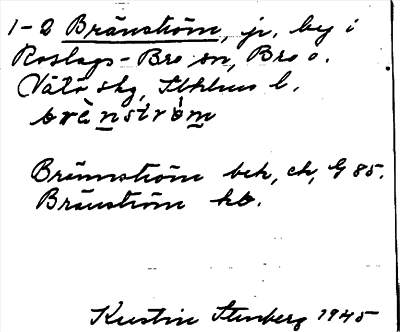 1-2 Bränström, jr, by i
Roslags-Bro sn, Bro o.
Väto skg, Sthlms l.
brä̀nströ̀m
Brännström bek, ek, G 85.
Bränström kb.
Kerstin Stenberg 1945